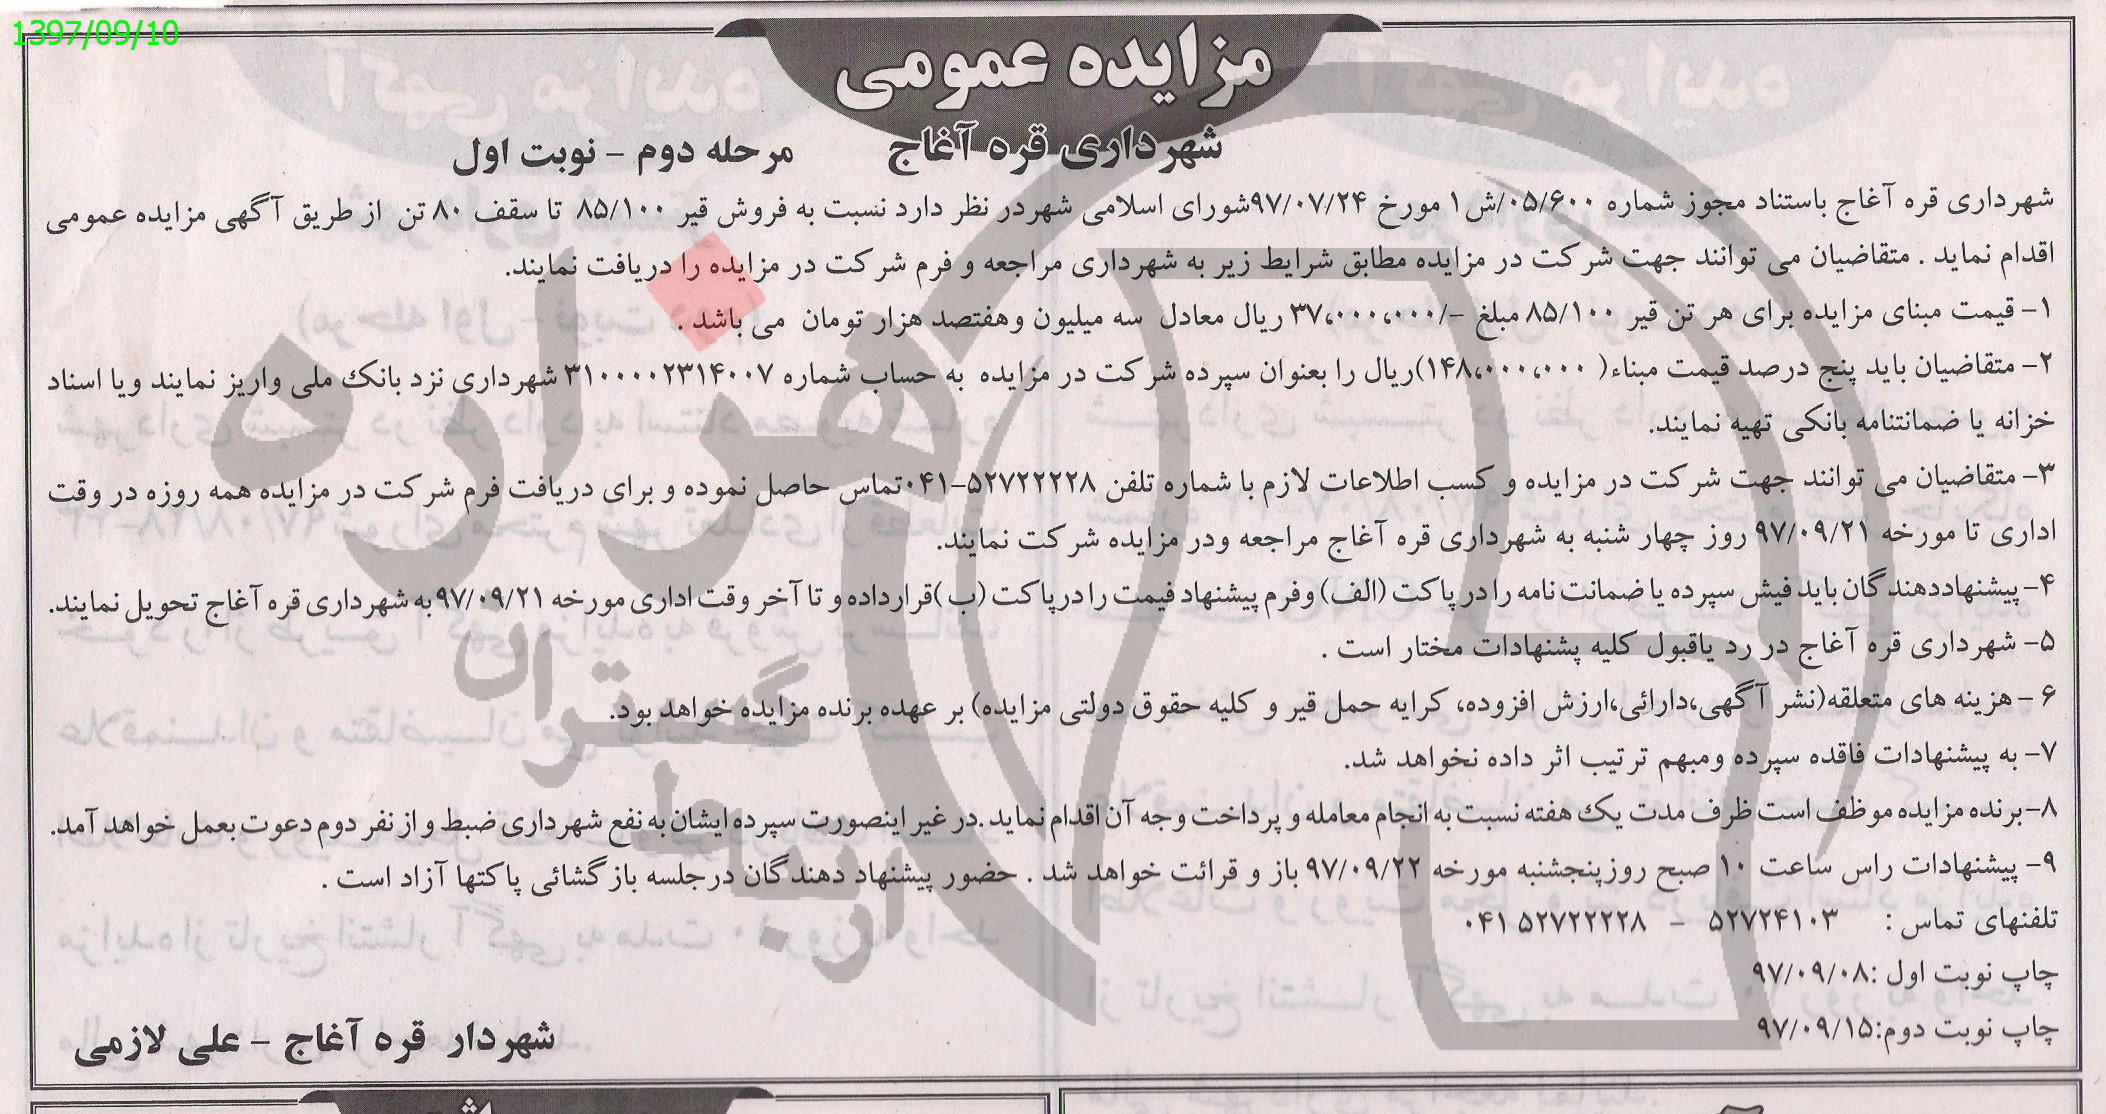 1397/09/10
مزایده عمومی
شهرداری قره آغاج مرحله دوم - نوبت اول
شهرداری قره آغاج باستناد مجوز شماره ۰۵/۶۰۰/ش۱ مورخ ۹۷/۰۷/۲۴شورای اسلامی شهردر نظر دارد نسبت به فروش قیر ۸۵/۱۰۰ تا سقف ۸۰ تن از طریق آگهی مزایده عمومی
اقدام نماید . متقاضیان می توانند جهت شرکت در مزایده مطابق شرایط زیر به شهرداری مراجعه و فرم شرکت در مزایده را دریافت نمایند.
۱- قیمت مبنای مزایده برای هر تن قیر ۸۵/۱۰۰ مبلغ -/۳۷،۰۰۰،۰۰۰ ریال معادل سه میلیون وهفتصد هزار تومان می باشد .
۲- متقاضیان باید پنج درصد قیمت مبناء( ۱۴۸،۰۰۰،۰۰۰)ریال را بعنوان سپرده شرکت در مزایده به حساب شماره ۳۱۰۰۰۰۲۳۱۴۰۰۷ شهرداری نزد بانک ملی واریز نمایند ویا اسناد
خزانه یا ضمانتنامه بانکی تهیه نمایند.
۳- متقاضیان می توانند جهت شرکت در مزایده و کسب اطلاعات لازم با شماره تلفن ۵۲۷۲۲۲۲۸-۰۴۱تماس حاصل نموده و برای دریافت فرم شرکت در مزایده همه روزه در وقت
اداری تا مورخه ۹۷/۰۹/۲۱ روز چهار شنبه به شهرداری قره آغاج مراجعه ودر مزایده شرکت نمایند.
۴- پیشنهاددهندگان باید فیش سپرده یا ضمانت نامه را در پاکت (الف) وفرم پیشنهاد قیمت را درپاکت (ب )قرارداده و تا آخر وقت اداری مورخه ۹۷/۰۹/۲۱به شهرداری قره آغاج تحویل نمایند.
۵- شهرداری قره آغاج در رد یاقبول کلیه پشنهادات مختار است .
۶ - هزینه های متعلقه(نشر آگهی،دارائی،ارزش افزوده، کرایه حمل قیر و کلیه حقوق دولتی مزایده) بر عهده برنده مزایده خواهد بود.
۷- به پیشنهادات فاقده سپرده ومبهم ترتیب اثر داده نخواهد شد.
۸-برنده مزایده موظف است ظرف مدت یک هفته نسبت به انجام معامله و پرداخت وجه آن اقدام نماید .در غیر اینصورت سپرده ایشان به نفع شهرداری ضبط و از نفر دوم دعوت بعمل خواهد آمد.
۹- پیشنهادات راس ساعت ۱۰ صبح روزپنجشنبه مورخه ۹۷/۰۹/۲۲ باز و قرائت خواهد شد . حضور پیشنهاد دهندگان درجلسه بازگشائی پاکتها آزاد است .
تلفنهای تماس : ۵۲۷۲۴۱۰۳ - ۵۲۷۲۲۲۲۸ ۰۴۱
چاپ نوبت اول :۹۷/۰۹/۰۸
چاپ نوبت دوم:۹۷/۰۹/۱۵
شهردار قره آغاج - علی لازمی
هزاره
گستران